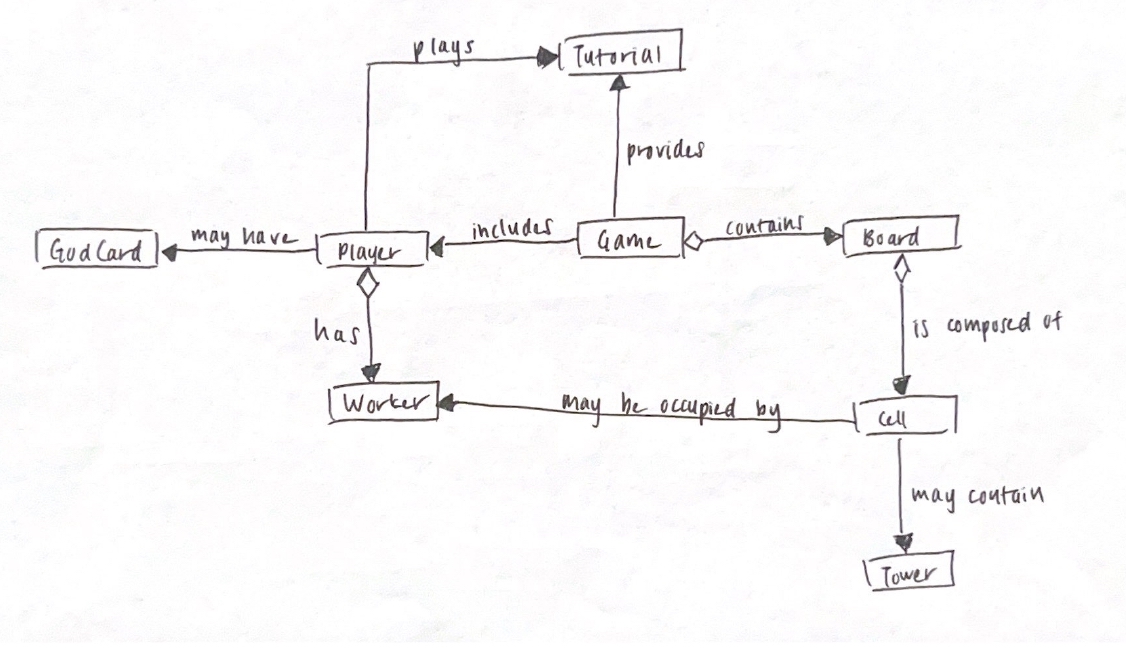 plays
Tutorial
provides
GodCard
may have
Player
includes
Game
contains
Board
has
is composed of
Worker
may be occupied by
Cell
may contain
Tower